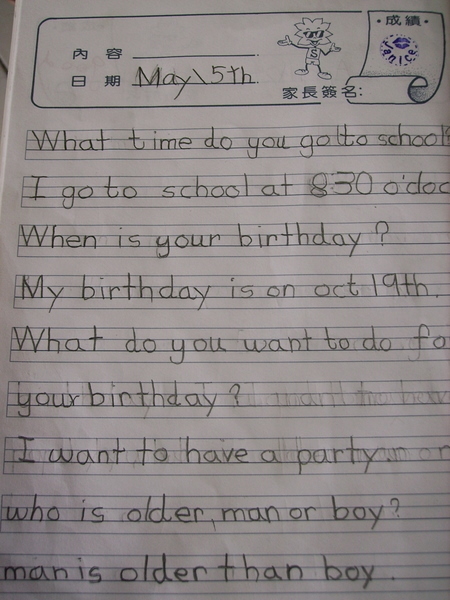 內容
日期 May\5th
家長簽名:
•成績•
Janice
What time do you go to school
I go to school at 830 o'cloc
When is your birthday?
My birthday is on oct 19th.
What do you want to do fo
your birthday?
I want to have a party.
who is older, man or boy?
man is older than boy.